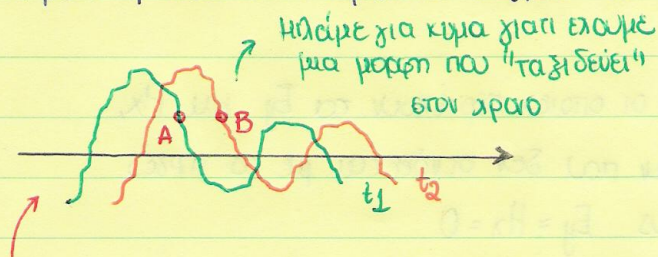 Μιλάμε για κύμα γιατί έχουμε
μια μορφή που "ταξιδεύει"
στον χρόνο
A
B
t1
t2
Ey = Hx = 0